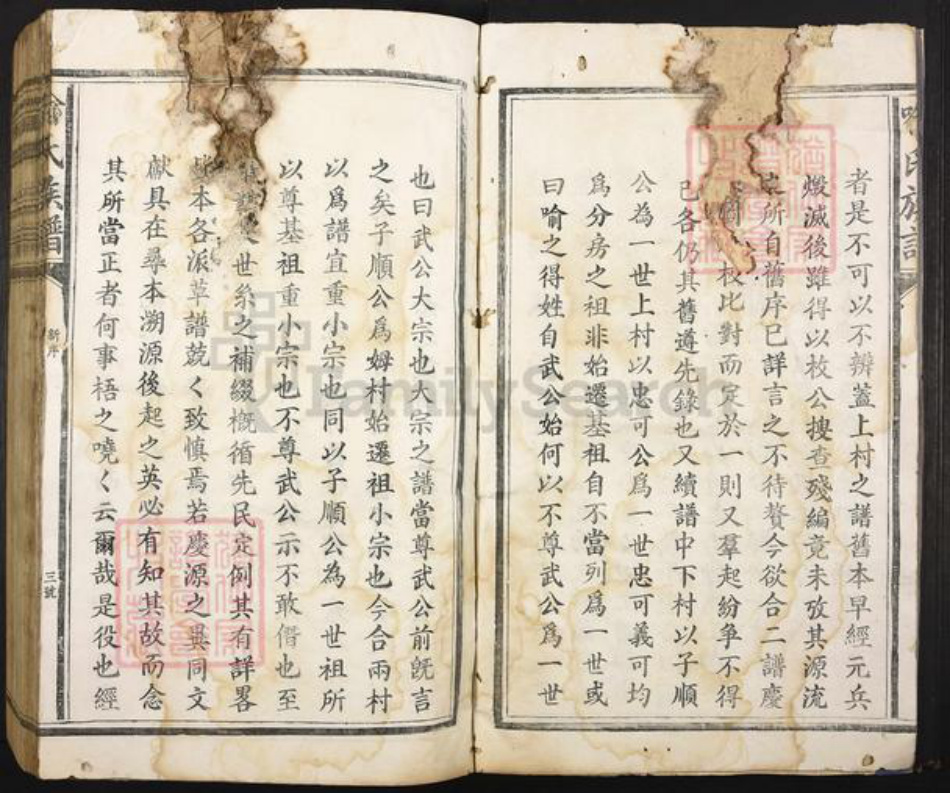 者是不可以不辨蓋上村之譜舊本早經元兵
燬滅後雖得以枚公搜查殘編竟未攷其源流
所自舊序已詳言之不待贅今欲合二譜慶
比對而定於一則又羣起紛爭不得
已各仍其舊遵先錄也又續譜中下村以子順
公為一世上村以忠可公爲一世忠可義可均
爲分房之祖非始遷基祖自不當列爲一世或
曰喻之得姓自武公始何以不尊武公爲一世
也曰武公大宗也大宗之譜當尊武公前旣言
之矣子順公爲姆村始遷祖小宗也今合兩村
以爲譜宜重小宗也同以子順公為一世祖所
以尊基祖重小宗也不尊武公示不敢僭也至
世系之補綴槪循先民定例其有詳畧
本各派草譜兢く致慎焉若慶源之異同文
獻具在尋本溯源後起之英必有知其故而念
其所當正者何事梧之嘵く云爾哉是役也經
氏族譜
新序
三號
FamilySearch